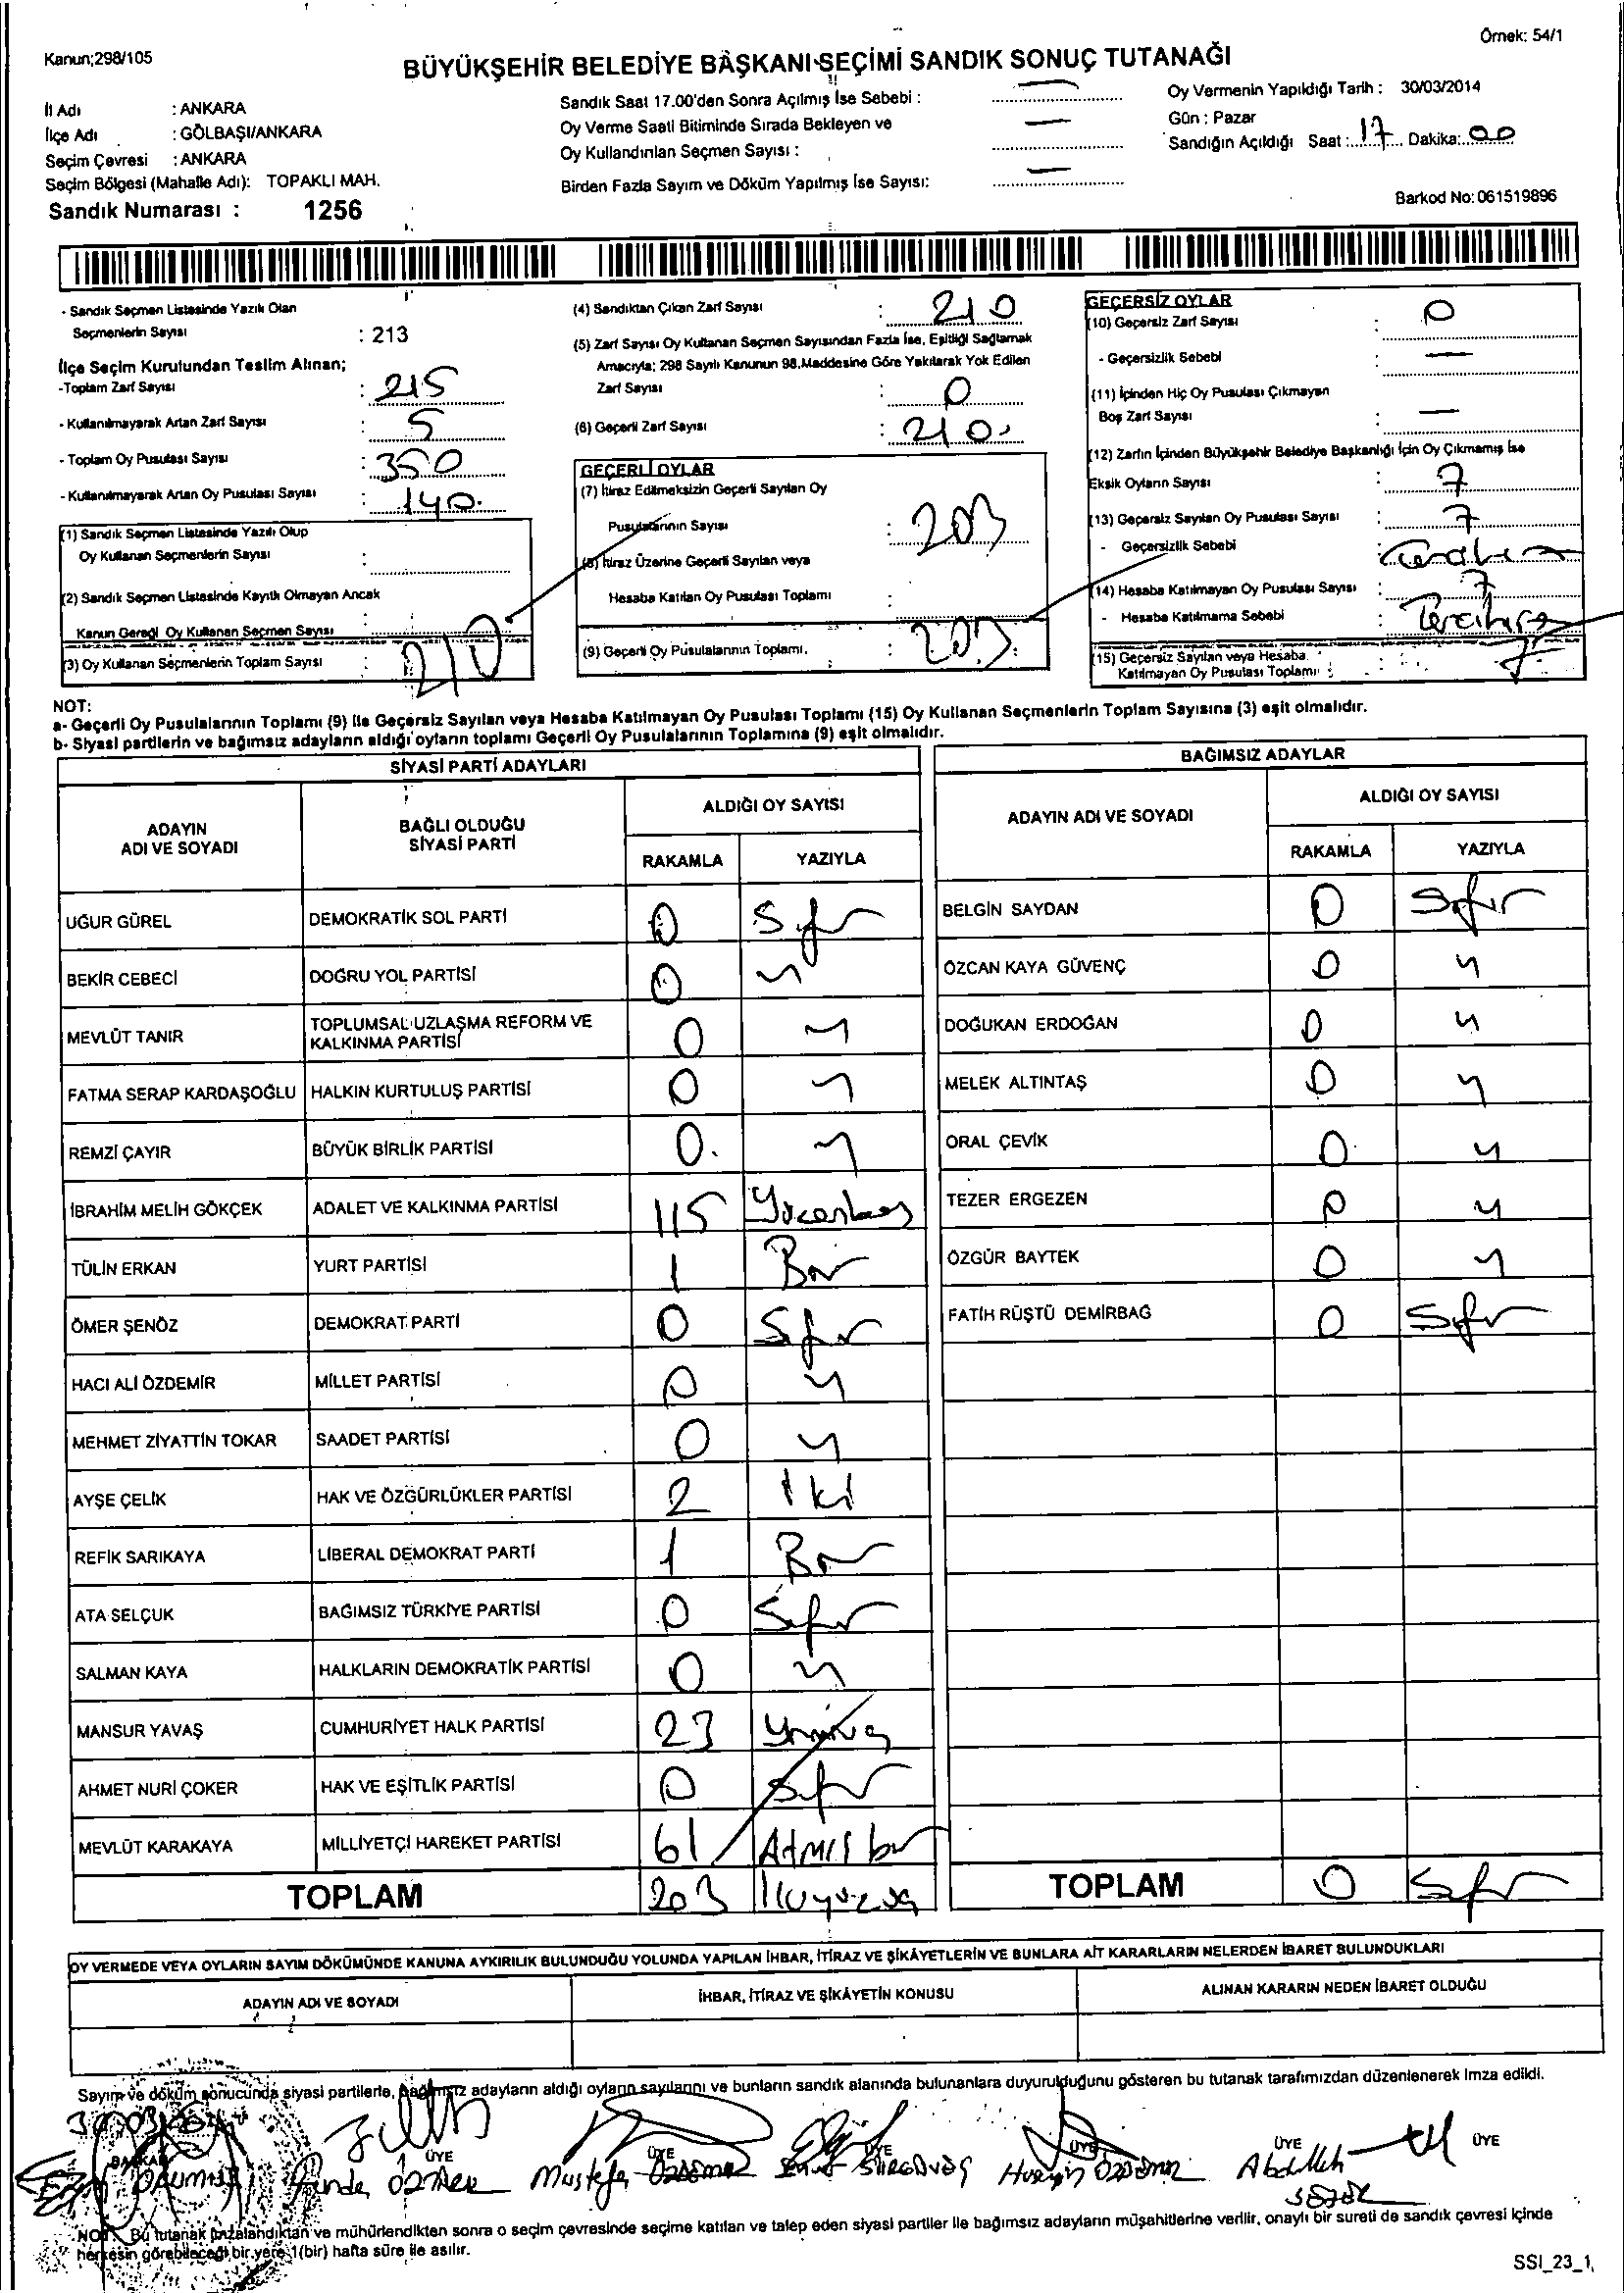 Kanun;298/105
Örnek: 54/1
BÜYÜKŞEHİR BELEDİYE BAŞKANI SEÇİMİ SANDIK SONUÇ TUTANAĞI
İl Adı : ANKARA
İlçe Adı : GÖLBAŞI/ANKARA
Seçim Çevresi : ANKARA
Seçim Bölgesi (Mahalle Adı): TOPAKLI MAH.
Sandık Numarası : 1256
Sandık Saat 17.00'den Sonra Açılmış İse Sebebi : —
Oy Verme Saati Bitiminde Sırada Bekleyen ve —
Oy Kullandırılan Seçmen Sayısı :
Birden Fazla Sayım ve Döküm Yapılmış İse Sayısı: —
Oy Vermenin Yapıldığı Tarih : 30/03/2014
Gün : Pazar
Sandığın Açıldığı Saat : 17 Dakika: 00
Barkod No: 061519896
- Sandık Seçmen Listesinde Yazılı Olan
Seçmenlerin Sayısı : 213
İlçe Seçim Kurulundan Teslim Alınan;
-Toplam Zarf Sayısı : 215
- Kullanılmayarak Artan Zarf Sayısı : 5
- Toplam Oy Pusulası Sayısı : 350
- Kullanılmayarak Artan Oy Pusulası Sayısı : 140
(1) Sandık Seçmen Listesinde Yazılı Olup
Oy Kullanan Seçmenlerin Sayısı :
(2) Sandık Seçmen Listesinde Kayıtlı Olmayan Ancak
Kanun Gereği Oy Kullanan Seçmen Sayısı :
(3) Oy Kullanan Seçmenlerin Toplam Sayısı : 210
(4) Sandıktan Çıkan Zarf Sayısı : 210
(5) Zarf Sayısı Oy Kullanan Seçmen Sayısından Fazla İse, Eşitliği Sağlamak
Amacıyla; 298 Sayılı Kanunun 98.Maddesine Göre Yakılarak Yok Edilen
Zarf Sayısı : 0
(6) Geçerli Zarf Sayısı : 210
GEÇERLİ OYLAR
(7) İtiraz Edilmeksizin Geçerli Sayılan Oy
Pusulalarının Sayısı : 203
(8) İtiraz Üzerine Geçerli Sayılan veya
Hesaba Katılan Oy Pusulası Toplamı :
(9) Geçerli Oy Pusulalarının Toplamı. : 203
GEÇERSİZ OYLAR
(10) Geçersiz Zarf Sayısı : 0
- Geçersizlik Sebebi : —
(11) İçinden Hiç Oy Pusulası Çıkmayan
Boş Zarf Sayısı : —
(12) Zarfın İçinden Büyükşehir Belediye Başkanlığı İçin Oy Çıkmamış İse
Eksik Oyların Sayısı : 7
(13) Geçersiz Sayılan Oy Pusulası Sayısı : 7
- Geçersizlik Sebebi :
(14) Hesaba Katılmayan Oy Pusulası Sayısı : 7
- Hesaba Katılmama Sebebi :
(15) Geçersiz Sayılan veya Hesaba
Katılmayan Oy Pusulası Toplamı : 7
NOT:
a- Geçerli Oy Pusulalarının Toplamı (9) ile Geçersiz Sayılan veya Hesaba Katılmayan Oy Pusulası Toplamı (15) Oy Kullanan Seçmenlerin Toplam Sayısına (3) eşit olmalıdır.
b- Siyasi partilerin ve bağımsız adayların aldığı oyların toplamı Geçerli Oy Pusulalarının Toplamına (9) eşit olmalıdır.
SİYASİ PARTİ ADAYLARI
ADAYIN ADI VE SOYADI
BAĞLI OLDUĞU SİYASİ PARTİ
ALDIĞI OY SAYISI
RAKAMLA YAZIYLA
UĞUR GÜREL DEMOKRATİK SOL PARTİ 0 Sıfır
BEKİR CEBECİ DOĞRU YOL PARTİSİ 0 "
MEVLÜT TANIR TOPLUMSAL UZLAŞMA REFORM VE KALKINMA PARTİSİ 0 "
FATMA SERAP KARDAŞOĞLU HALKIN KURTULUŞ PARTİSİ 0 "
REMZİ ÇAYIR BÜYÜK BİRLİK PARTİSİ 0 "
İBRAHİM MELİH GÖKÇEK ADALET VE KALKINMA PARTİSİ 115 Yüzonbeş
TÜLİN ERKAN YURT PARTİSİ 1 Bir
ÖMER ŞENÖZ DEMOKRAT PARTİ 0 Sıfır
HACI ALİ ÖZDEMİR MİLLET PARTİSİ 0 "
MEHMET ZİYATTİN TOKAR SAADET PARTİSİ 0 "
AYŞE ÇELİK HAK VE ÖZGÜRLÜKLER PARTİSİ 2 İki
REFİK SARIKAYA LİBERAL DEMOKRAT PARTİ 1 Bir
ATA SELÇUK BAĞIMSIZ TÜRKİYE PARTİSİ 0 Sıfır
SALMAN KAYA HALKLARIN DEMOKRATİK PARTİSİ 0 "
MANSUR YAVAŞ CUMHURİYET HALK PARTİSİ 23 Yirmiüç
AHMET NURİ ÇOKER HAK VE EŞİTLİK PARTİSİ 0 Sıfır
MEVLÜT KARAKAYA MİLLİYETÇİ HAREKET PARTİSİ 61 Atmış bir
TOPLAM 203 İkiyüzüç
BAĞIMSIZ ADAYLAR
ADAYIN ADI VE SOYADI
ALDIĞI OY SAYISI
RAKAMLA YAZIYLA
BELGİN SAYDAN 0 Sıfır
ÖZCAN KAYA GÜVENÇ 0 "
DOĞUKAN ERDOĞAN 0 "
MELEK ALTINTAŞ 0 "
ORAL ÇEVİK 0 "
TEZER ERGEZEN 0 "
ÖZGÜR BAYTEK 0 "
FATİH RÜŞTÜ DEMİRBAĞ 0 Sıfır
TOPLAM 0 Sıfır
OY VERMEDE VEYA OYLARIN SAYIM DÖKÜMÜNDE KANUNA AYKIRILIK BULUNDUĞU YOLUNDA YAPILAN İHBAR, İTİRAZ VE ŞİKÂYETLERİN VE BUNLARA AİT KARARLARIN NELERDEN İBARET BULUNDUKLARI
ADAYIN ADI VE SOYADI
İHBAR, İTİRAZ VE ŞİKÂYETİN KONUSU
ALINAN KARARIN NEDEN İBARET OLDUĞU
Sayım ve döküm sonucunda siyasi partilerle, bağımsız adayların aldığı oyların sayılarını ve bunların sandık alanında bulunanlara duyurulduğunu gösteren bu tutanak tarafımızdan düzenlenerek imza edildi.
BAŞKAN ÜYE ÜYE ÜYE ÜYE ÜYE ÜYE
Mustafa Özdemir
Hüseyin Özdemir
Abdullah
NOT: Bu tutanak imzalandıktan ve mühürlendikten sonra o seçim çevresinde seçime katılan ve talep eden siyasi partiler ile bağımsız adayların müşahitlerine verilir, onaylı bir sureti de sandık çevresi içinde
herkesin görebileceği bir yere 1(bir) hafta süre ile asılır.
SSI_23_1